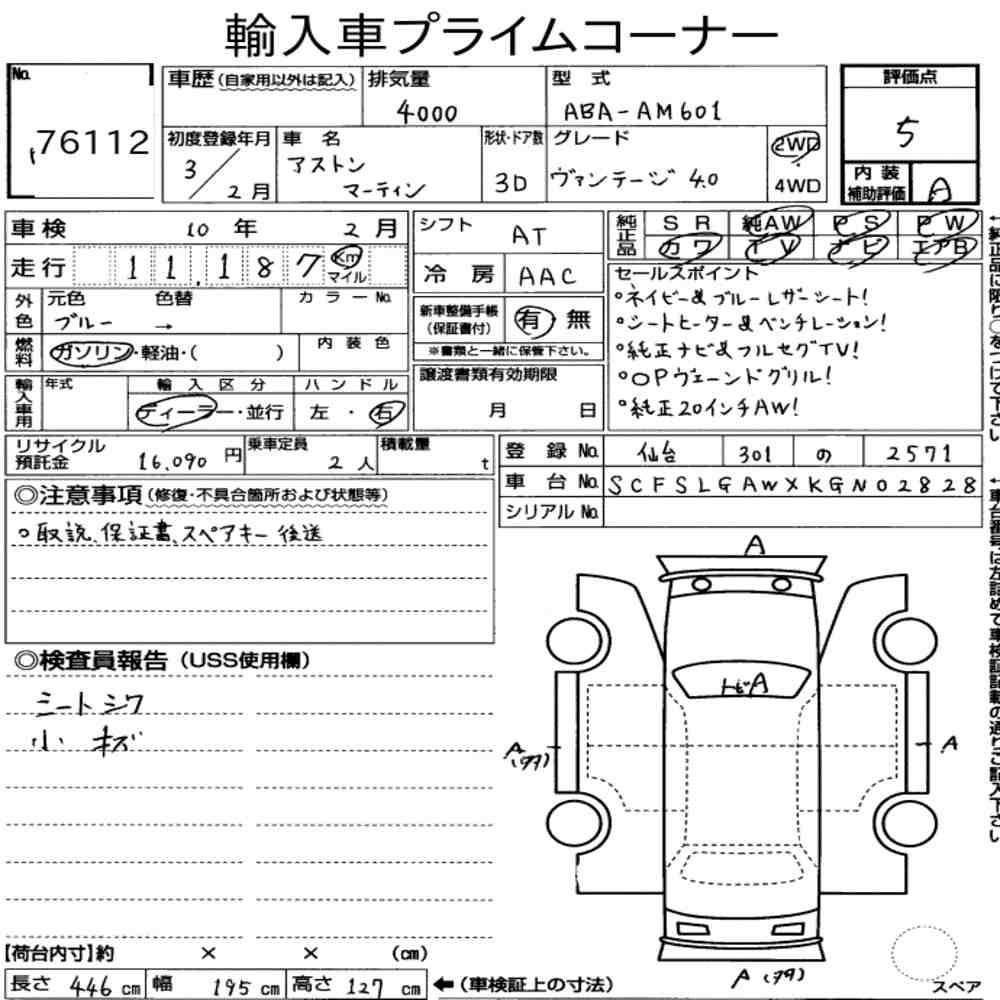 輸入車プライムコーナー
No. 76112
車歴(自家用以外は記入) 排気量 4000 型式 ABA-AM601
初度登録年月 3/2月 車名 アストン マーティン 形状・ドア数 3D グレード ヴァンテージ 4.0 2WD・4WD
評価点 5
内装補助評価 A
車検 10年 2月
走行 11,187 Km マイル
外色 元色 ブルー 色替 → カラーNo.
燃料 ガソリン・軽油・( ) 内装色
輸入車用 年式 輸入区分 ディーラー・並行 ハンドル 左・右
シフト AT
冷房 AAC
新車整備手帳(保証書付) 有 無
※書類と一緒に保管下さい。
譲渡書類有効期限
月 日
純正品 SR 純AW PS PW
カワ TV ナビ エアB
セールスポイント
°ネイビー&ブルーレザーシート!
°シートヒーター&ベンチレーション!
°純正ナビ&フルセグTV!
°OPヴェーンドグリル!
°純正20インチAW!
←純正品に限り○をつけて下さい
リサイクル預託金 16,090円 乗車定員 2人 積載量 t
登録No. 仙台 301 の 2571
車台No. SCFSLGAWXKGN02828
シリアルNo.
←車台番号は左詰めで車検証記載の通りご記入下さい
◎注意事項(修復・不具合箇所および状態等)
○取説、保証書、スペアキー後送
◎検査員報告(USS使用欄)
シートシワ
小キズ
A
トビA
A(ワタ)
A
A(ワタ)
スペア
【荷台内寸】約 × × (cm)
長さ 446cm 幅 195cm 高さ 127cm ←(車検証上の寸法)